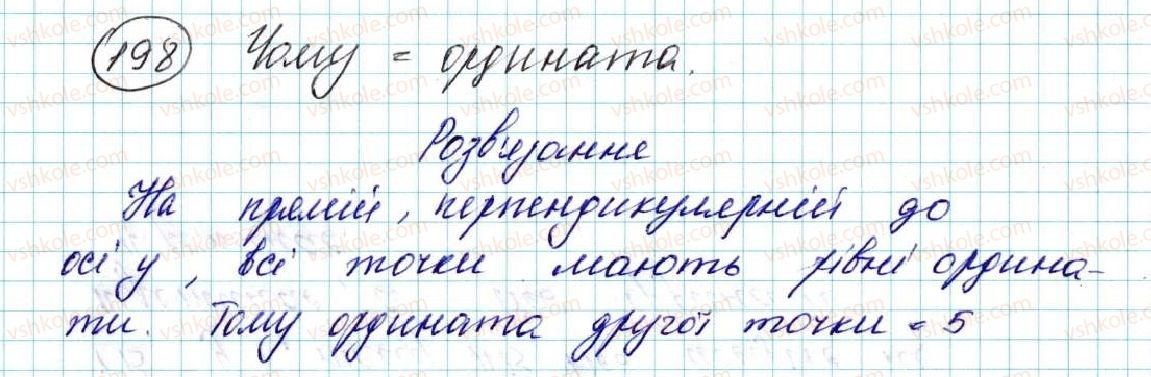 198 Чому = ордината.
Розв'язання
На прямій, перпендикулярній до
осі y, всі точки мають рівні ордина-
ти. Тому ордината другої точки = 5